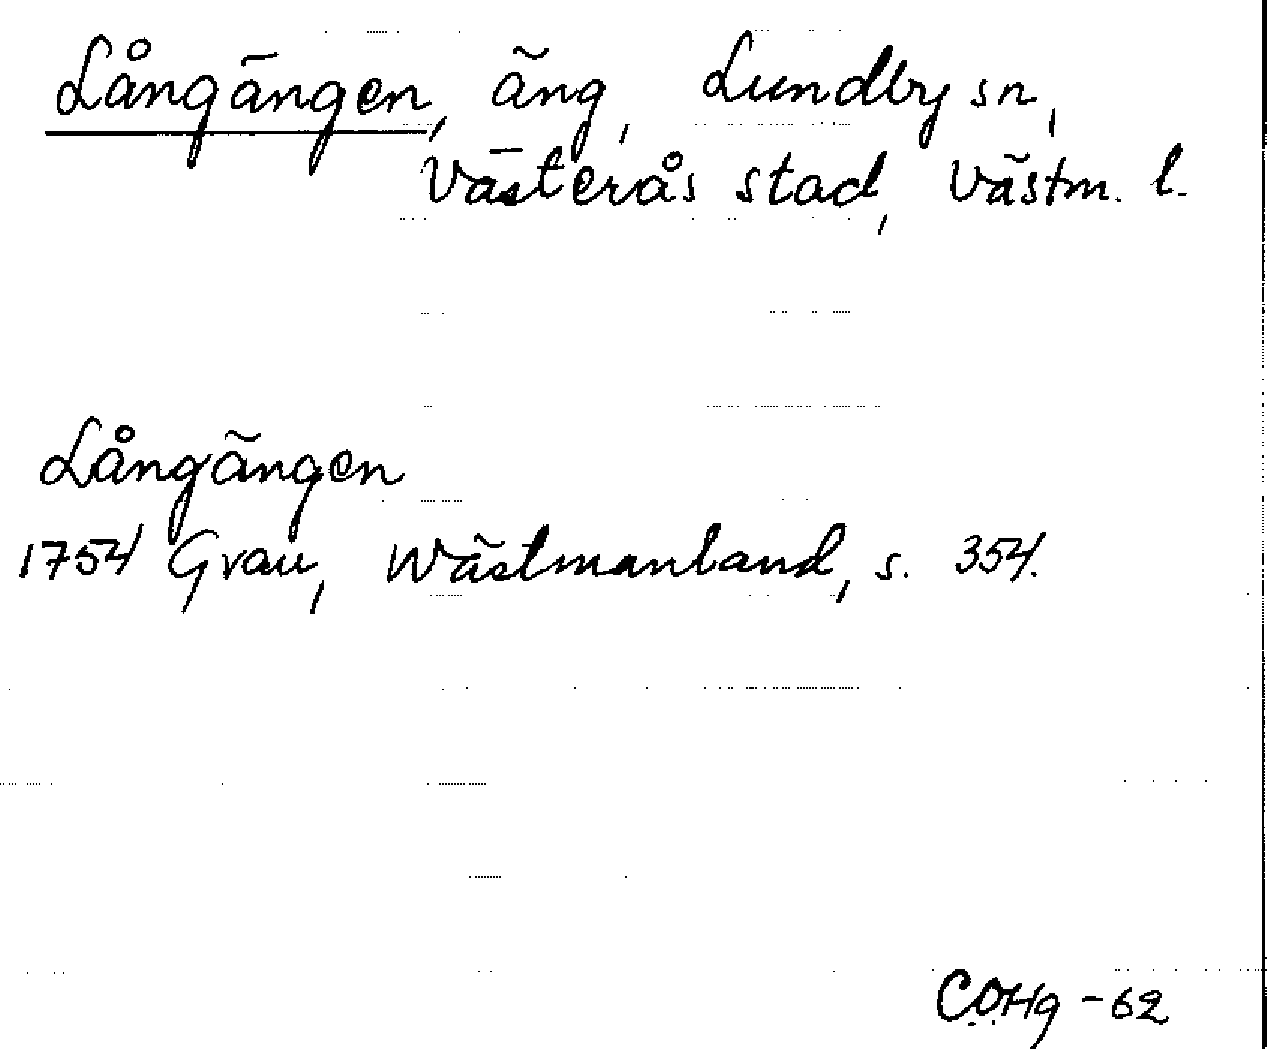 Långängen, äng, Lundby sn,
Västerås stad, Västm. l.
Långängen
1754 Grau, Wästmanland, s. 354.
COHg -62